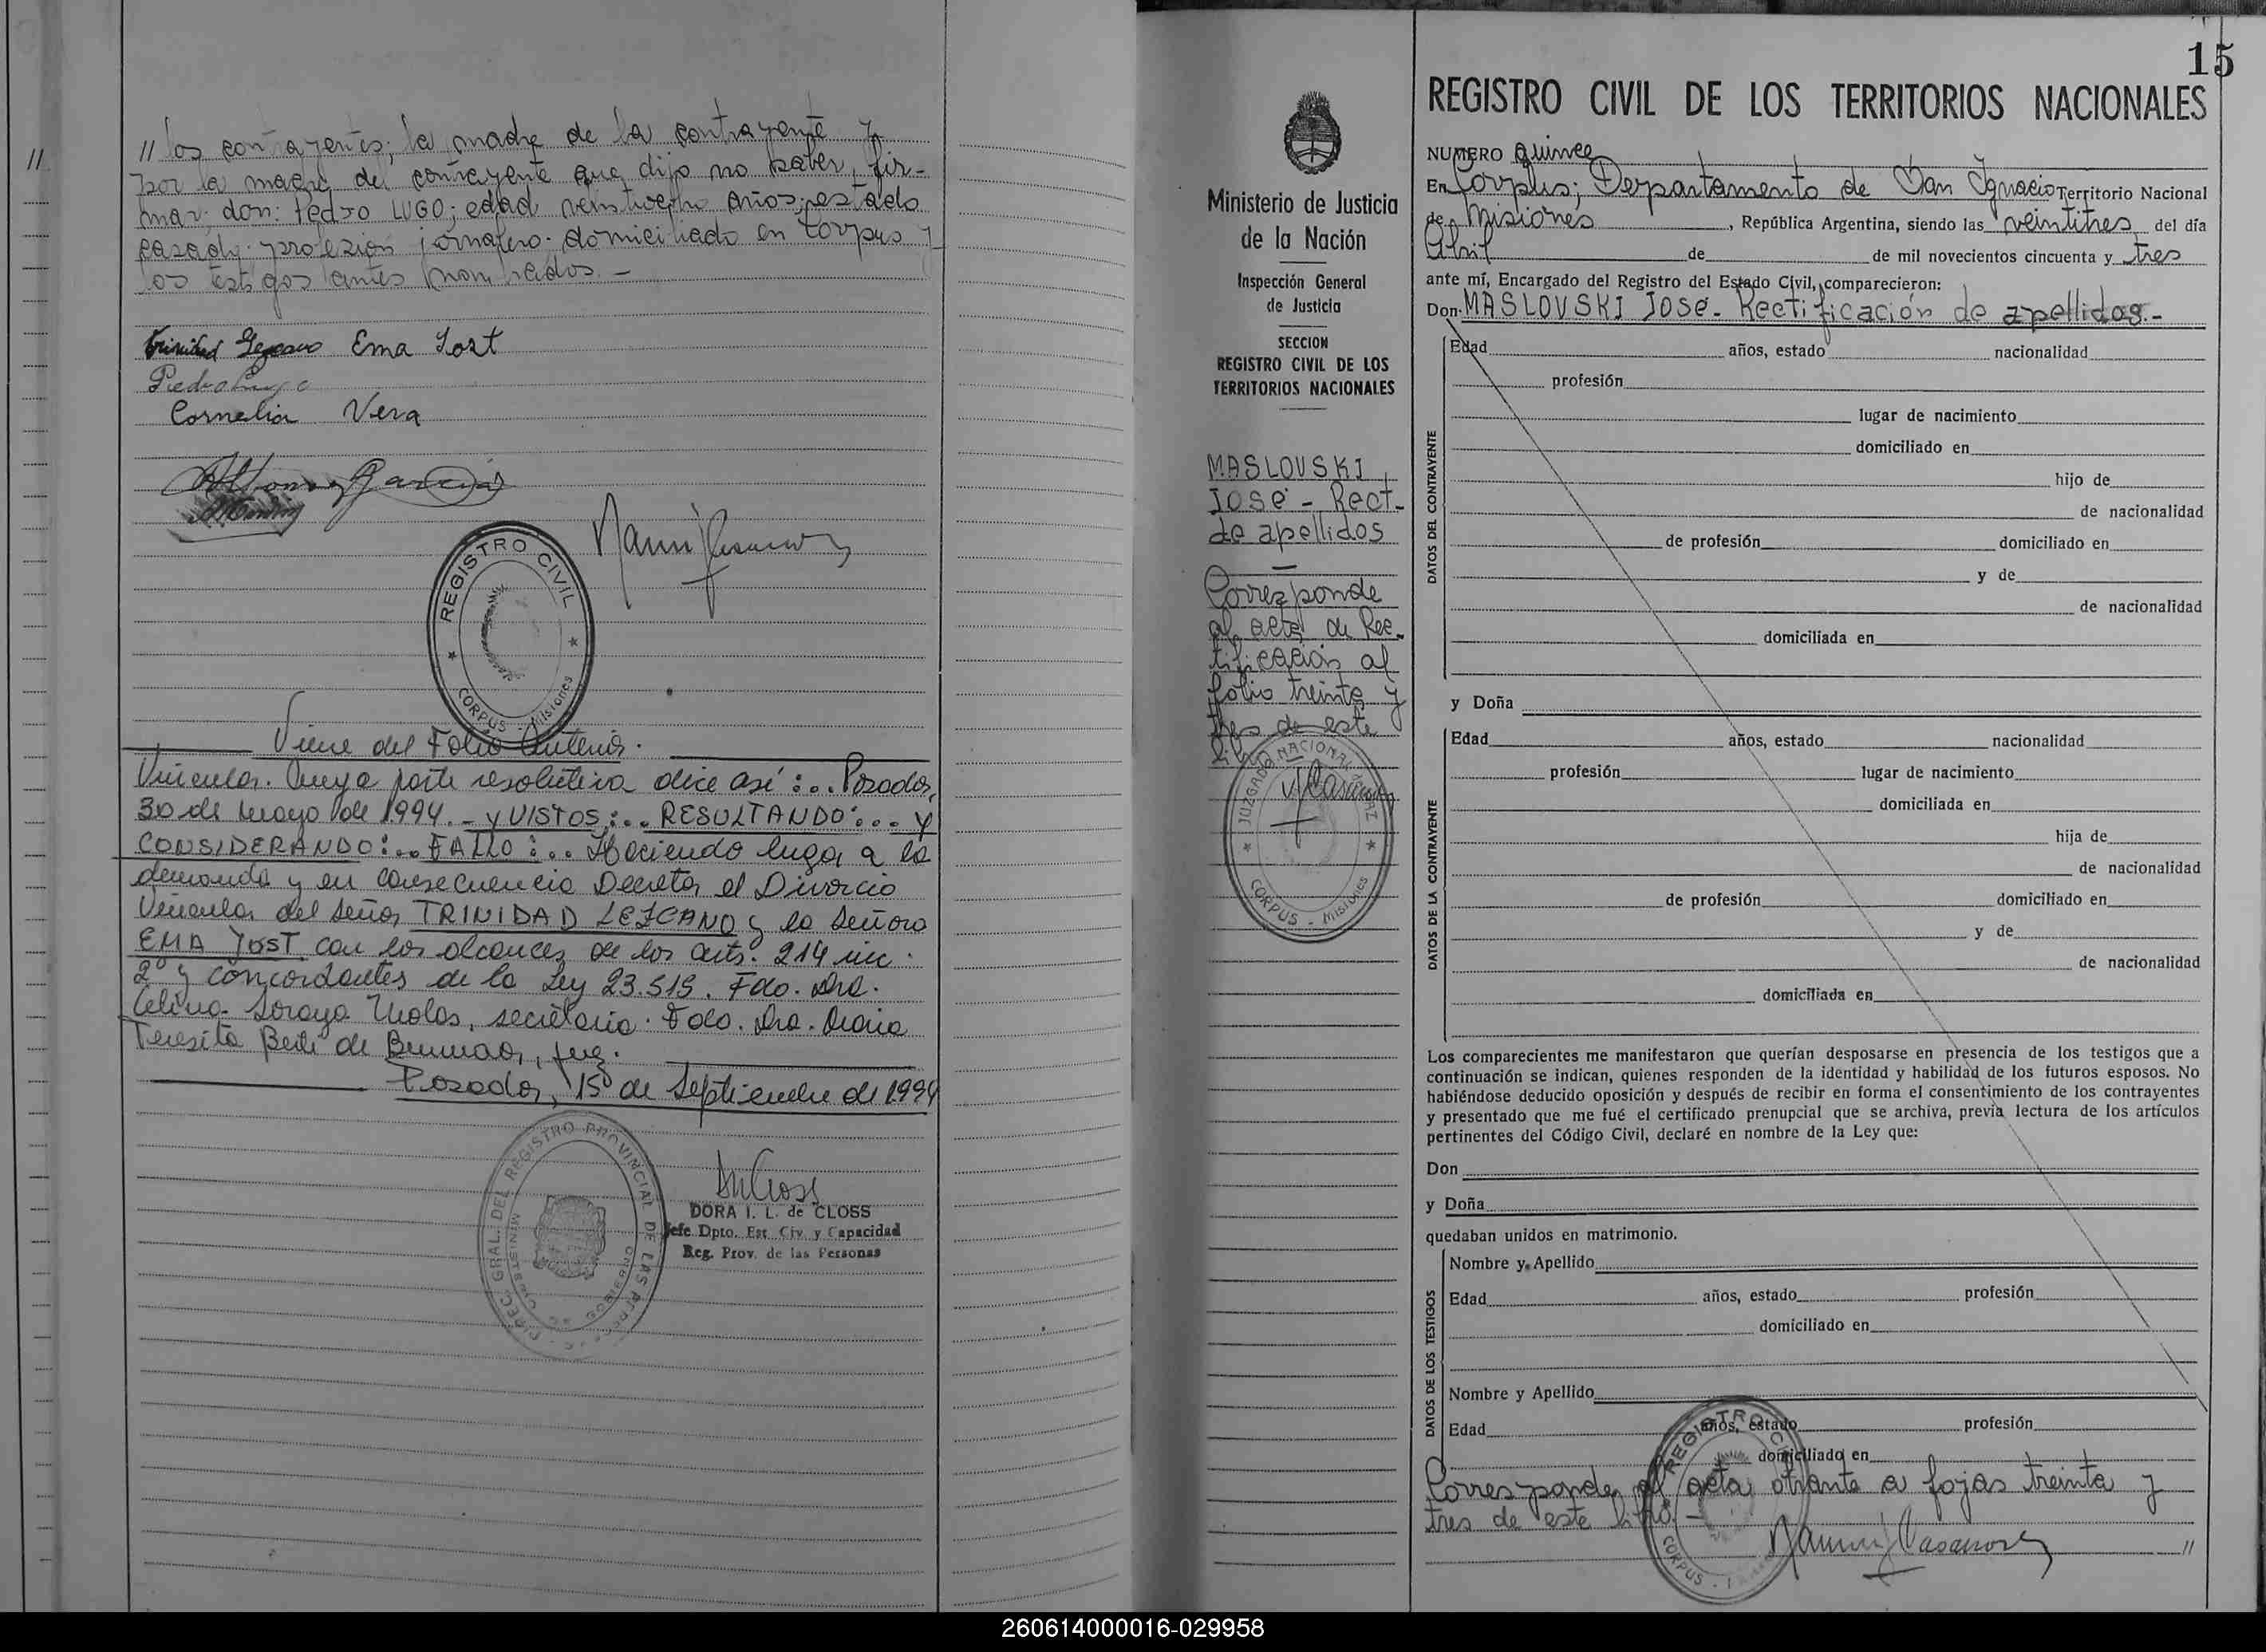 //
// los contrayentes; la madre de la contrayente y
por la madre del contrayente que dijo no saber fir-
mar; don: Pedro LUGO; edad veintiocho años; estado
casado; profesion jornalero- domiciliado en Corpus y
los testigos antes nombrados.-
Trinidad Lezcano Ema Yost
Piedro Lugo
Cornelia Vera
Garcia
REGISTRO CIVIL
CORPUS - Misiones
Viene del Folio Anterior.
Vincular. Cuya parte resolutiva dice así:... Posadas,
30 de Mayo de 1994.- y VISTOS:... RESULTANDO:... Y
CONSIDERANDO:... FALLO:... Haciendo lugar a la
demanda y en consecuencia Decretar el Divorcio
Vincular del señor TRINIDAD LEZCANO y la señora
EMA YOST con los alcances de los arts. 214 inc.
2º y concordantes de la Ley 23.515. Fdo. Dra.
Celina Soraya, secretaria. Fdo. Dra. Maria
Teresita de, Juez.
Posadas, 15 de Septiembre de 1994
DIREC. GRAL. DEL REGISTRO PROVINCIAL DE LAS PERSONAS
DORA I. L. de CLOSS
Jefe Dpto. Est. Civ. y Capacidad
Reg. Prov. de las Personas
Ministerio de Justicia
de la Nación
Inspección General
de Justicia
SECCION
REGISTRO CIVIL DE LOS
TERRITORIOS NACIONALES
MASLOVSKI
José - Rect-
de apellidos
Corresponde
al acta de Rec-
tificación al
folio treinta y
tres de este
JUZGADO NACIONAL de PAZ
CORPUS - Misiones
15
REGISTRO CIVIL DE LOS TERRITORIOS NACIONALES
NUMERO quince
En Corpus; Departamento de San Ignacio Territorio Nacional
de Misiones, República Argentina, siendo las veintitres del día
Abril de de mil novecientos cincuenta y tres
ante mí, Encargado del Registro del Estado Civil, comparecieron:
Don MASLOVSKI José- Rectificación de apellidos.-
DATOS DEL CONTRAYENTE
Edad años, estado nacionalidad
profesión
lugar de nacimiento
domiciliado en
hijo de
de nacionalidad
de profesión domiciliado en
y de
de nacionalidad
domiciliada en
y Doña
DATOS DE LA CONTRAYENTE
Edad años, estado nacionalidad
profesión lugar de nacimiento
domiciliada en
hija de
de nacionalidad
de profesión domiciliado en
y de
de nacionalidad
domiciliada en
Los comparecientes me manifestaron que querían desposarse en presencia de los testigos que a
continuación se indican, quienes responden de la identidad y habilidad de los futuros esposos. No
habiéndose deducido oposición y después de recibir en forma el consentimiento de los contrayentes
y presentado que me fué el certificado prenupcial que se archiva, previa lectura de los artículos
pertinentes del Código Civil, declaré en nombre de la Ley que:
Don
y Doña
quedaban unidos en matrimonio.
DATOS DE LOS TESTIGOS
Nombre y Apellido
Edad años, estado profesión
domiciliado en
Nombre y Apellido
Edad años, estado profesión
domiciliado en
Corresponde al acta obrante a fojas treinta y
tres de este libro.-
//
REGISTRO
CORPUS
260614000016-029958